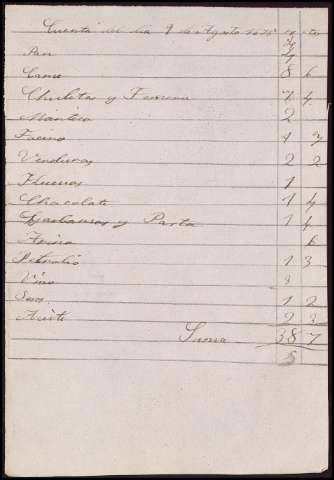 Cuenta del dia 9 de Agosto
Pan
Carne 8 6
Chuletas y Ternera 7 4
Manteca 2
Tocino 1 3
Verduras 2 2
Huevos 1
Chocolate 1 4
Garbanzos y Pasta 1 4
Harina 6
Petroleo 1 3
Vino 3
1 2
Aceite 2 3
Suma 38 7